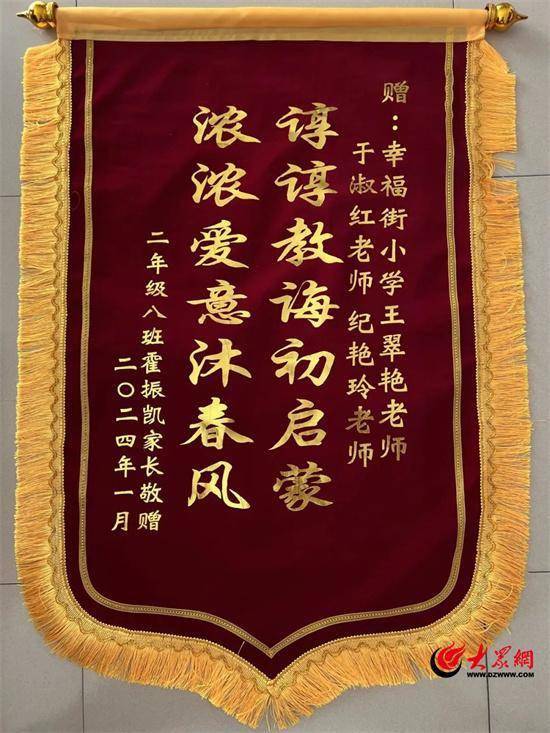 赠：幸福街小学王翠艳老师
于淑红老师 纪艳玲老师
谆谆教诲初启蒙
浓浓爱意沐春风
二年级八班霍振凯家长敬赠
二〇二四年一月
大眾網
WWW.DZWWW.COM